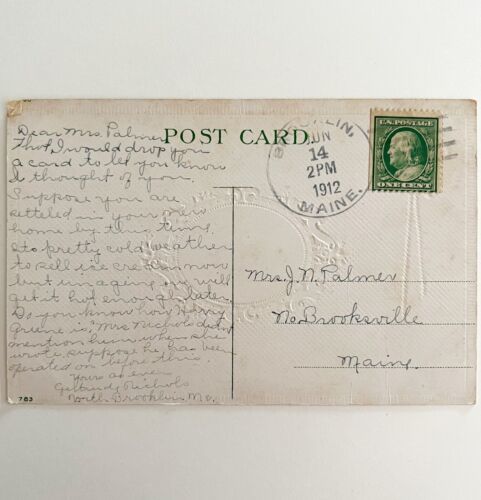 Dear Mrs. Palmer
Thot I would drop you
a card to let you know
I thought of you.
Suppose you are
settled in your new
home by this time.
Its pretty cold weather
to sell ice cream now
but imagine it will
get it hot enough later.
Do you know how Henry
Greene is, Mrs Nichols didn't
mention him when she
wrote, suppose he has been
operated on before this.
Yours as ever
Gertrude Nichols
North Brooklin Me.
763
POST CARD.
BROOKLIN,
JUN
14
2PM
1912
MAINE.
U.S. POSTAGE
ONE CENT
Mrs. J. N. Palmer
No. Brooksville
Maine.